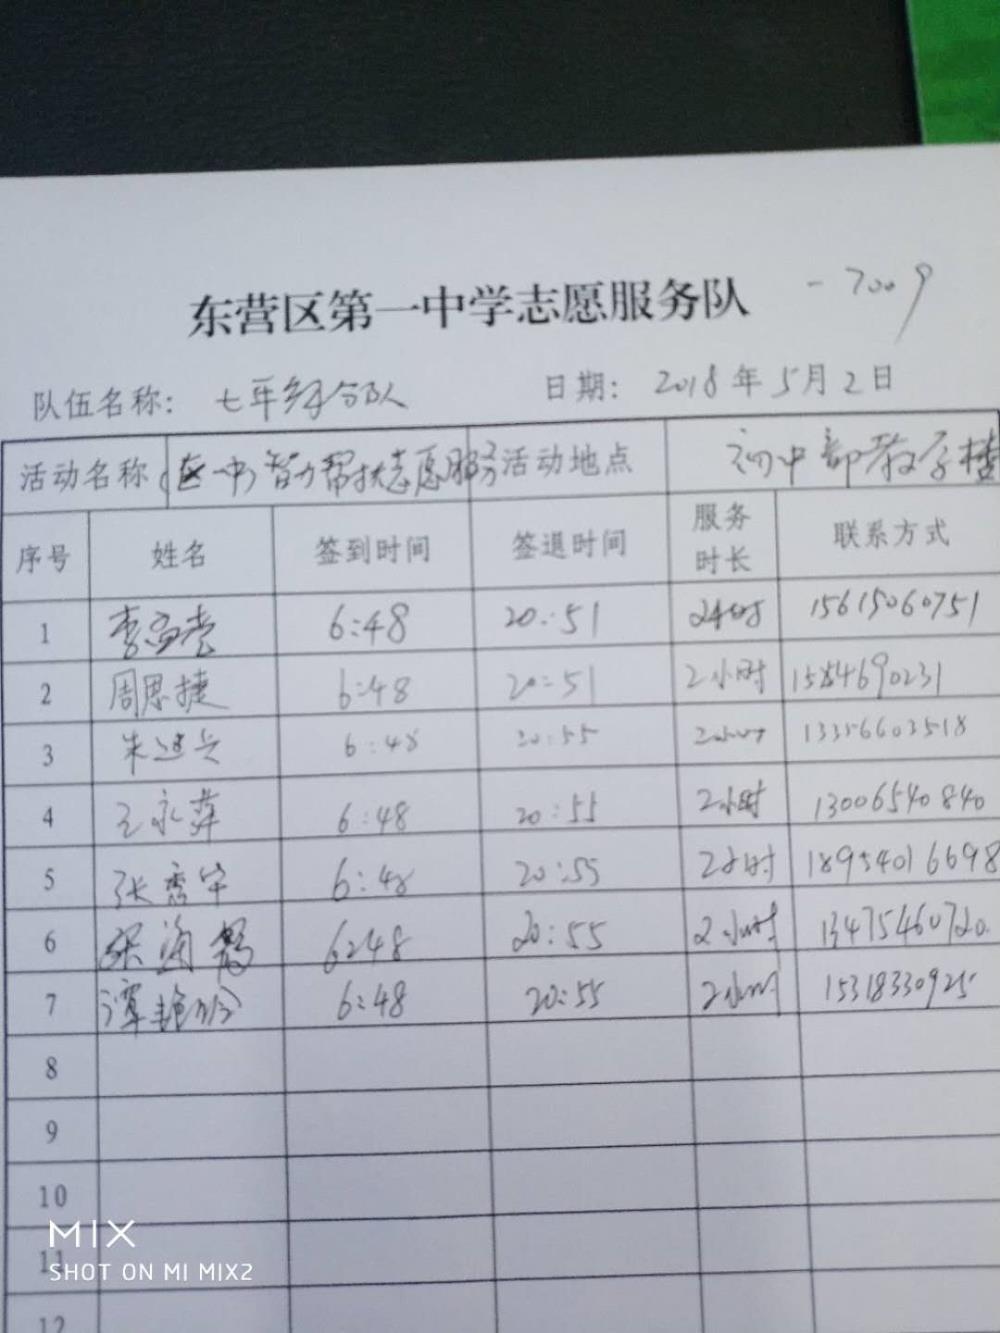 东营区第一中学志愿服务队 -7009
队伍名称: 七年级分队 日期: 2018年5月2日
活动名称 区一中智力帮扶志愿服务 活动地点 初中部教学楼
序号 姓名 签到时间 签退时间 服务时长 联系方式
1 李 6:48 20:51 2小时 15615060751
2 周思捷 6:48 20:51 2小时 1584690231
3 朱 6:48 20:55 2小时 13356603518
4 王永萍 6:48 20:55 2小时 13006540840
5 张秀华 6:48 20:55 2小时 18954016698
6 6:48 20:55 2小时 13475460720
7 谭艳玲 6:48 20:55 2小时 15318330925
8
9
10
11
12
MIX
SHOT ON MI MIX2